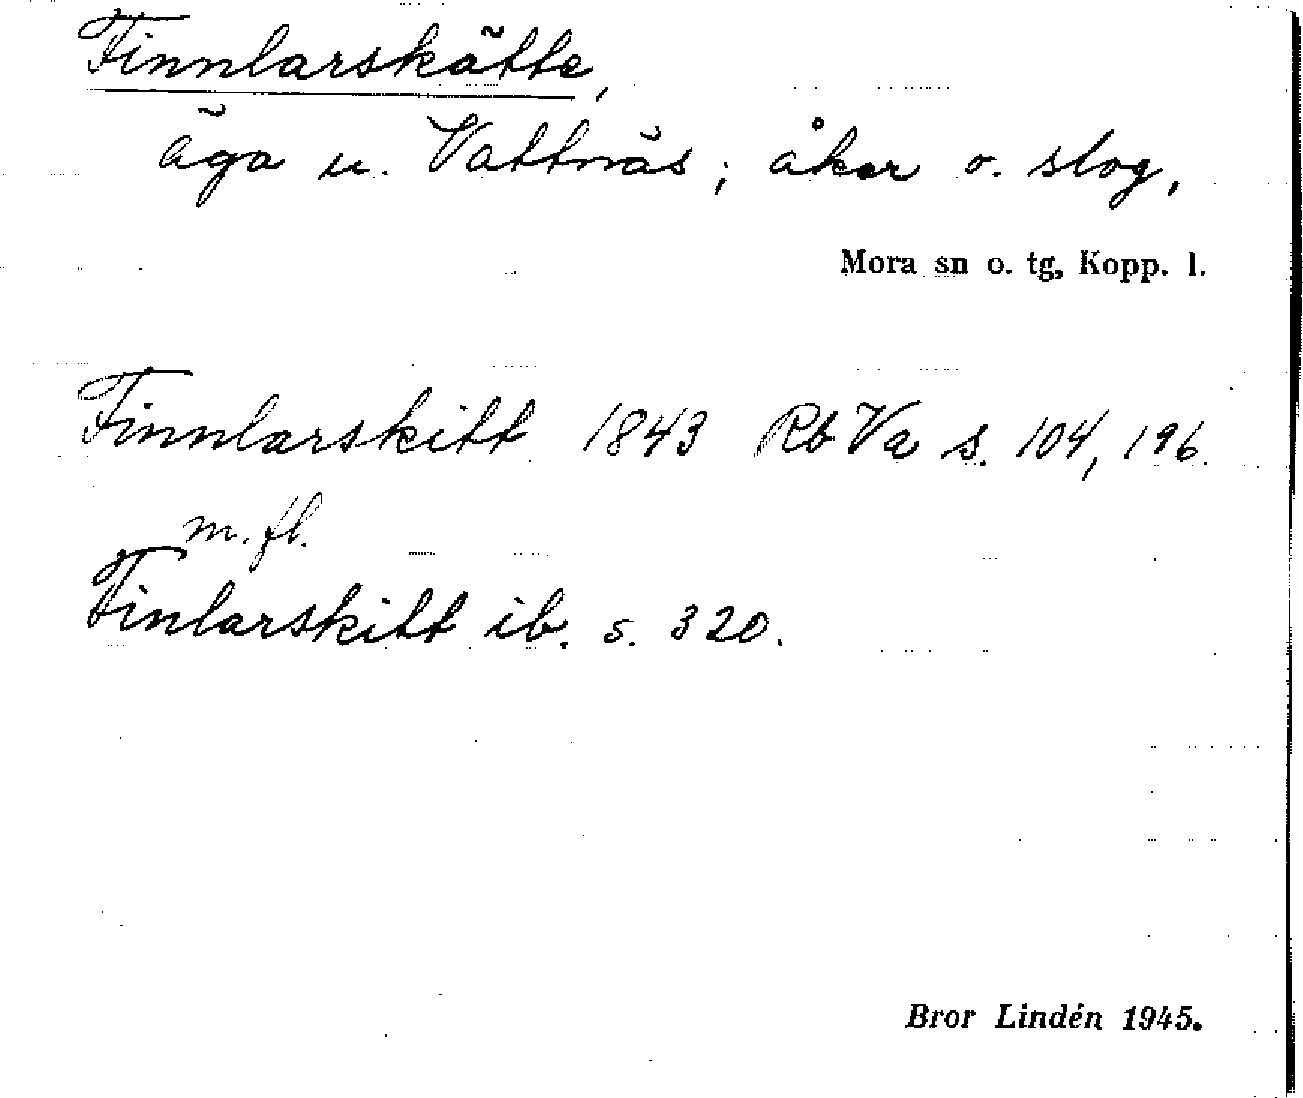 Finnlarskätte,
äga u. Vattnäs; åker o. slog,
Mora sn o. tg, Kopp. l.
Finnlarskitt 1843 Rb Va s. 104, 196
m. fl.
Finlarskitt ib. s. 320.
Bror Lindén 1945.